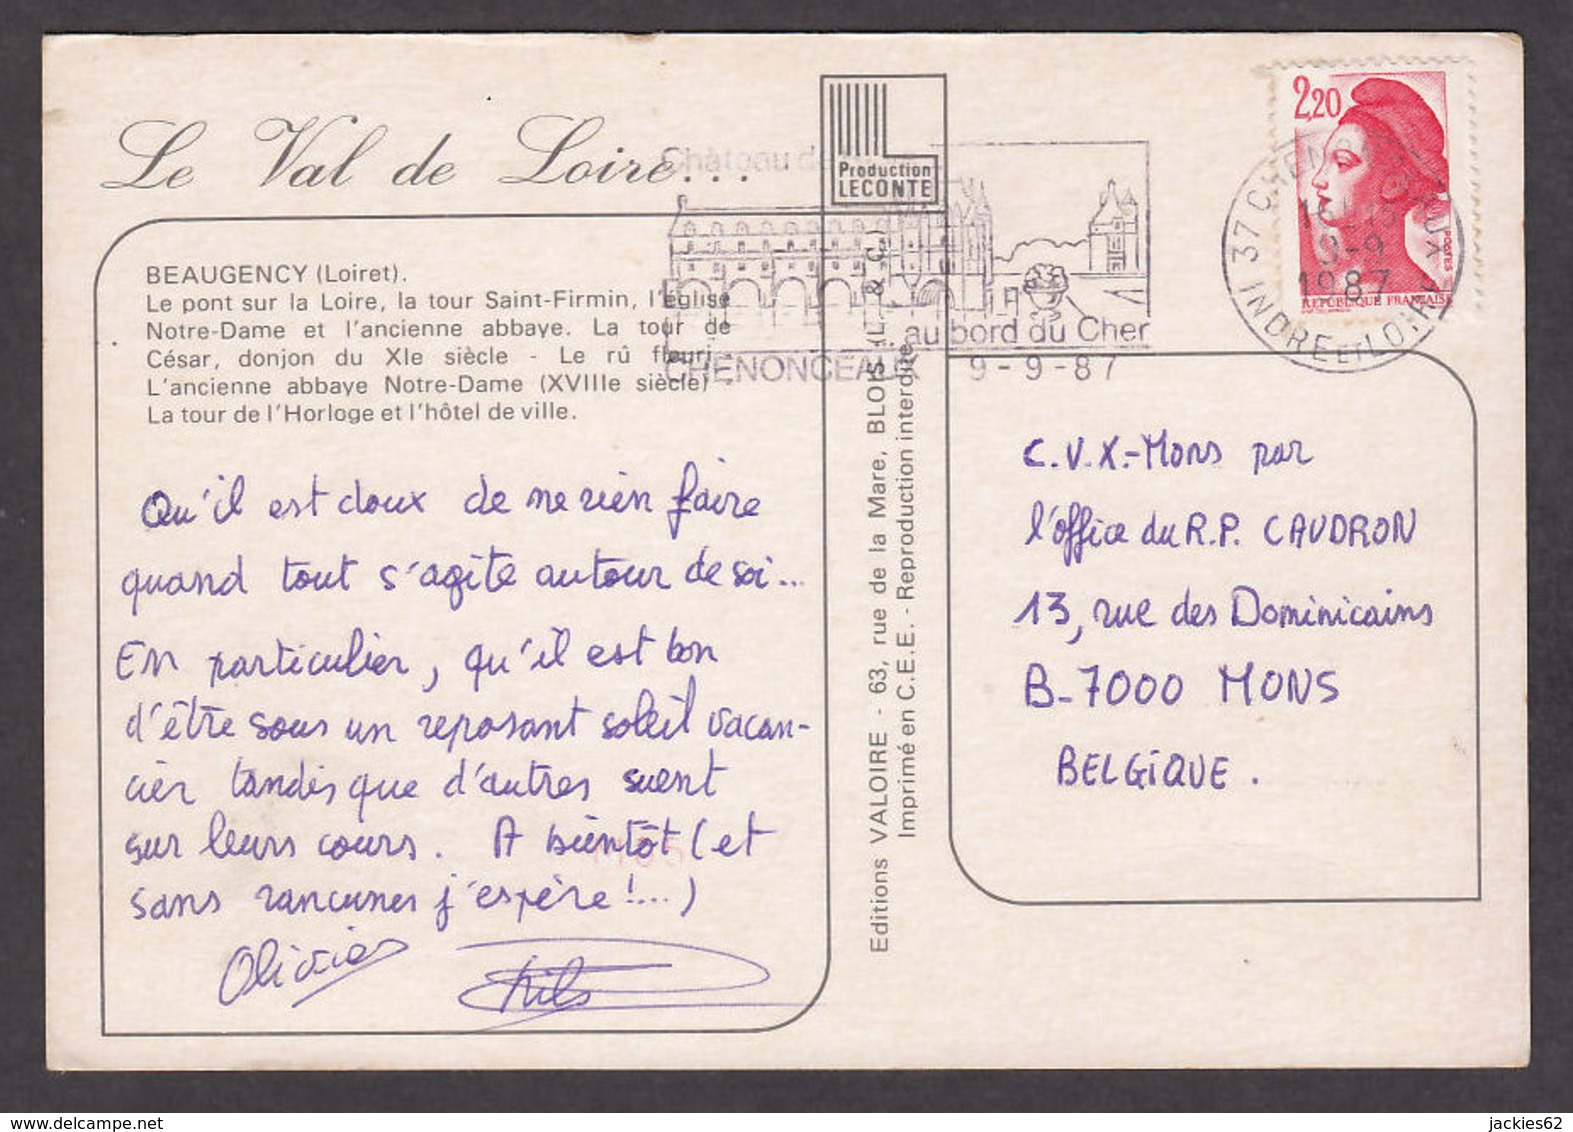 Le Val de Loire...
BEAUGENCY (Loiret).
Le pont sur la Loire, la tour Saint-Firmin, l'église
Notre-Dame et l'ancienne abbaye. La tour de
César, donjon du XIe siècle - Le rû fleuri -
L'ancienne abbaye Notre-Dame (XVIIIe siècle) -
La tour de l'Horloge et l'hôtel de ville.
Qu'il est doux de ne rien faire
quand tout s'agite autour de soi...
En particulier, qu'il est bon
d'être sous un reposant soleil vacan-
cier tandis que d'autres suent
sur leurs cours. A bientôt (et
sans rancunes j'espère !...)
Olivier
Production
LECONTE
Château de
au bord du Cher
CHENONCEAUX 9-9-87
Editions VALOIRE - 63, rue de la Mare, BLOIS (L. & C.)
Imprimé en C.E.E. - Reproduction interdite
2,20
POSTES
REPUBLIQUE FRANÇAISE
37 CHENONCEAUX
9-9
1987
INDRE ET LOIRE
C.V.X.-Mons par
l'office du R.P. CAUDRON
13, rue des Dominicains
B-7000 MONS
BELGIQUE.
jackies62